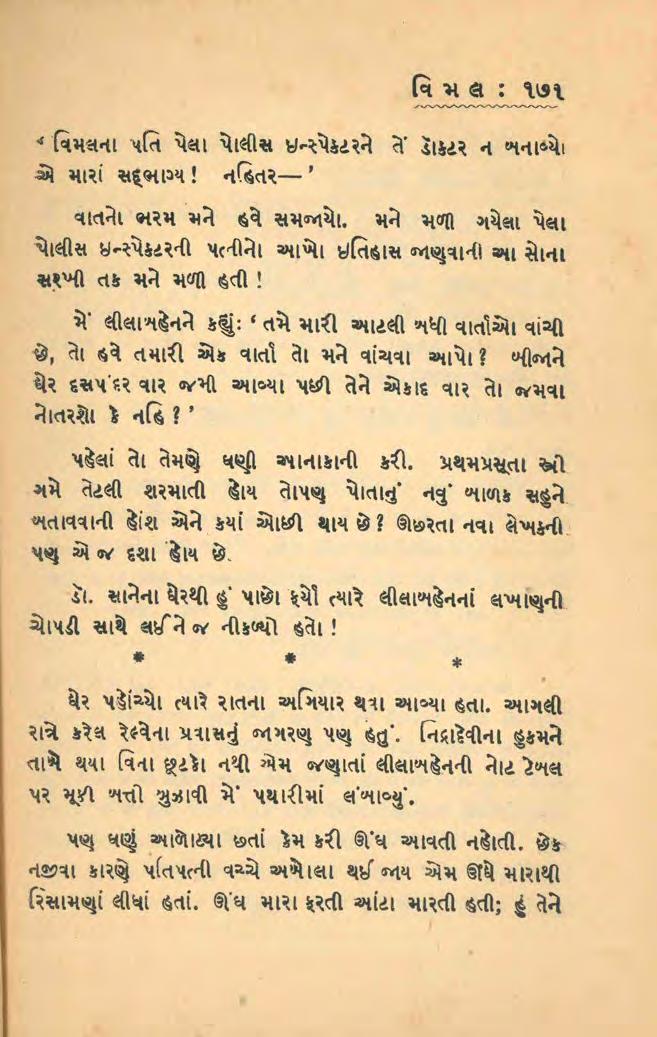 વિમલ : ૧૭૧
‘ વિમલના પતિ પેલા પોલીસ ઇન્સ્પેક્ટરને તેં ડૉક્ટર ન બનાવ્યો
એ મારાં સદ્ભાગ્ય ! નહિતર— ’
વાતનો ભરમ મને હવે સમજાયો. મને મળી ગયેલા પેલા
પોલીસ ઇન્સ્પેક્ટરની પત્નીનો આખો ઇતિહાસ જાણવાની આ સોના
સરખી તક મને મળી હતી !
મેં લીલાબહેનને કહ્યુંઃ ‘ તમે મારી આટલી બધી વાર્તાઓ વાંચી
છે, તો હવે તમારી એક વાર્તા તો મને વાંચવા આપો ? બીજાને
ઘેર દસપંદર વાર જમી આવ્યા પછી તેને એકાદ વાર તો જમવા
નોતરશો કે નહિ ? ’
પહેલાં તો તેમણે ઘણી આનાકાની કરી. પ્રથમપ્રસૂતા સ્ત્રી
ગમે તેટલી શરમાતી હોય તોપણ પોતાનું નવું બાળક સહુને
બતાવવાની હોંશ એને કયાં ઓછી થાય છે ? ઊછરતા નવા લેખકની
પણ એ જ દશા હોય છે.
ડૉ. સાનેના ઘેરથી હું પાછો ફર્યો ત્યારે લીલાબહેનનાં લખાણની
ચોપડી સાથે લઈને જ નીકળ્યો હતો !
* * *
ઘેર પહોંચ્યો ત્યારે રાતના અગિયાર થવા આવ્યા હતા. આગલી
રાત્રે કરેલ રેલ્વેના પ્રવાસનું જાગરણ પણ હતું. નિદ્રાદેવીના હુકમને
તાબે થયા વિના છૂટકો નથી એમ જણાતાં લીલાબહેનની નોટ ટેબલ
પર મૂકી બત્તી બુઝાવી મેં પથારીમાં લંબાવ્યું.
પણ ઘણું આળોટ્યા છતાં કેમ કરી ઊંઘ આવતી નહોતી. છેક
નજીવા કારણે પતિપત્ની વચ્ચે અબોલા થઈ જાય એમ ઊંઘે મારાથી
રિસામણાં લીધાં હતાં. ઊંઘ મારા ફરતી આંટા મારતી હતી; હું તેને